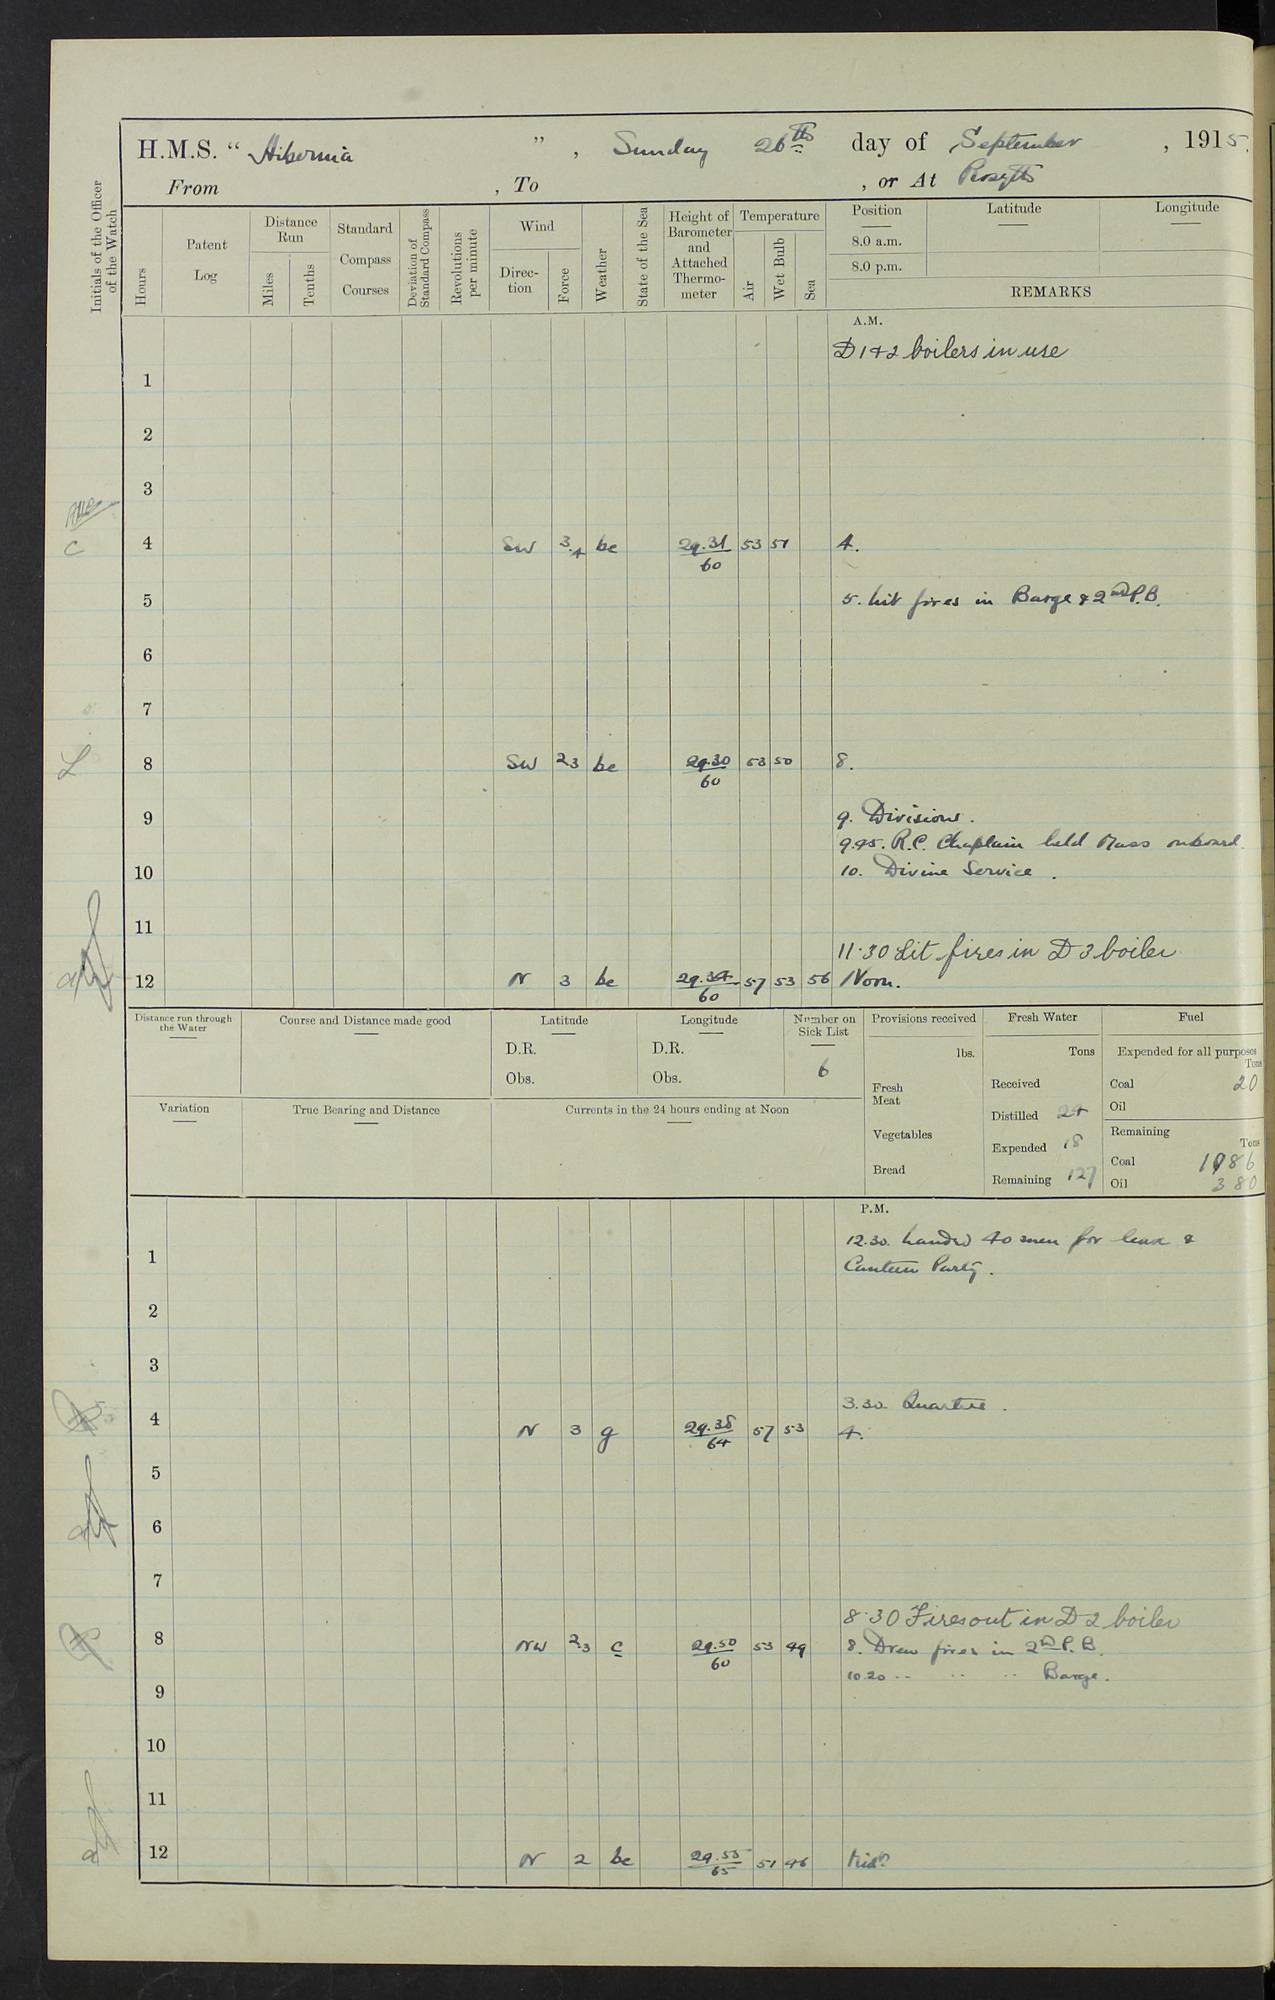 H.M.S. “ Hibernia ” , Sunday 26th day of September , 1915.
From , To , or At Rosyth
Initials of the Officer of the Watch
Hours
Patent Log
Distance Run
Miles
Tenths
Standard Compass Courses
Deviation of Standard Compass
Revolutions per minute
Wind
Direc-tion
Force
Weather
State of the Sea
Height of Barometer and Attached Thermo-meter
Temperature
Air
Wet Bulb
Sea
Position
8.0 a.m.
8.0 p.m.
Latitude
Longitude
REMARKS
A.M.
D 1 & 2 boilers in use
1
2
3
4 SW 3.4 bc 29.31/60 53 51 4.
5 5. Lit fires in Barge & 2nd P.B.
6
7
8 SW 2.3 bc 29.30/60 53 50 8.
9 9. Divisions.
9.45. R.C. Chaplain held Mass onboard.
10 10. Divine Service.
11
11.30 Lit fires in D 3 boiler
12 N 3 bc 29.34/60 57 53 56 Noon.
Distance run through the Water
Course and Distance made good
Latitude
D.R.
Obs.
Longitude
D.R.
Obs.
Number on Sick List
6
Provisions received
lbs.
Fresh Meat
Vegetables
Bread
Fresh Water
Tons
Received
Distilled 24
Expended 18
Remaining 127
Fuel
Expended for all purposes
Tons
Coal 20
Oil
Remaining
Tons
Coal 1186
Oil 380
Variation
True Bearing and Distance
Currents in the 24 hours ending at Noon
P.M.
12.30. Landed 40 men for leave &
1 Canteen Party.
2
3
3.30. Quarters.
4 N 3 g 29.38/64 57 53 4.
5
6
7
8.30 Fires out in D 2 boiler
8 NW 2.3 c 29.50/60 53 49 8. Drew fires in 2nd P.B.
10.20 " " " Barge.
9
10
11
12 N 2 bc 29.55/65 51 46 Midt